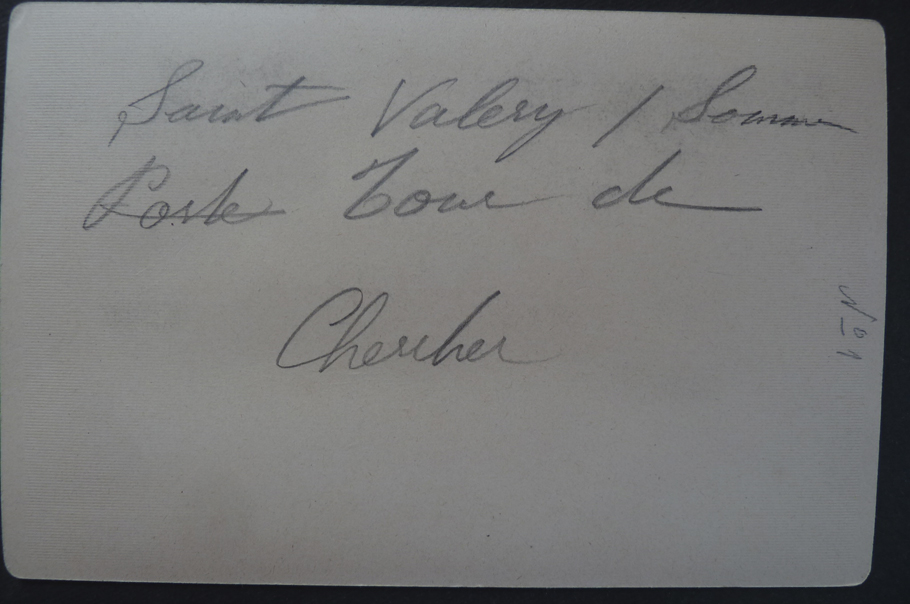 Saint Valery / Somme
Porte Tour de
Chercher
N° 1